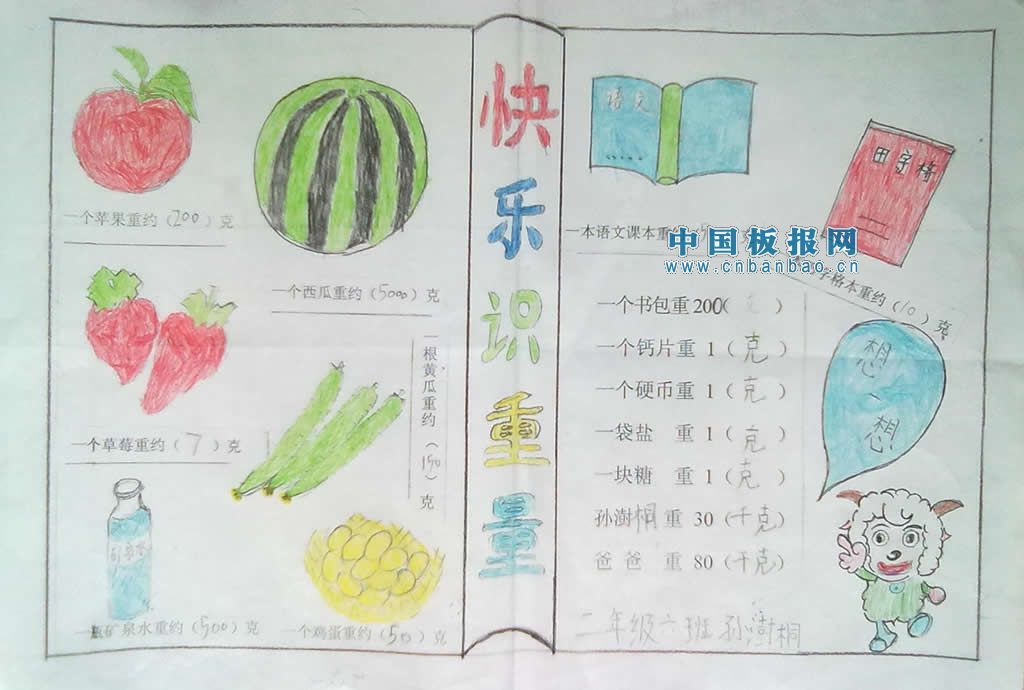 快乐识重量
一个苹果重约（200）克
一个西瓜重约（5000）克
一个草莓重约（7）克
一根黄瓜重约（150）克
矿泉水
一瓶矿泉水重约（500）克
一个鸡蛋重约（50）克
语文
田字格
一本语文课本重
中国板报网
www.cnbanbao.cn
字格本重约（10）克
一个书包重 200（ ）
一个钙片重 1（克）
一个硬币重 1（克）
一袋盐 重 1（克）
一块糖 重 1（克）
孙澍桐 重 30（千克）
爸爸 重 80（千克）
想、想
二年级六班 孙澍桐